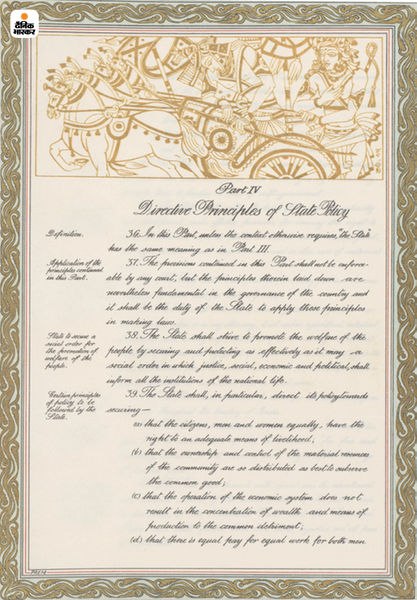 दैनिक
भास्कर
Part IV
Directive Principles of State Policy
Definition.
36. In this Part, unless the context otherwise requires, "the State"
has the same meaning as in Part III.
Application of the
principles contained
in this Part.
37. The provisions contained in this Part shall not be enforce-
able by any court, but the principles therein laid down are
nevertheless fundamental in the governance of the country and
it shall be the duty of the State to apply these principles
in making laws.
State to secure a
social order for
the promotion of
welfare of the
people.
38. The State shall strive to promote the welfare of the
people by securing and protecting as effectively as it may a
social order in which justice, social, economic and political, shall
inform all the institutions of the national life.
Certain principles
of policy to be
followed by the
State.
39. The State shall, in particular, direct its policy towards
securing—
(a) that the citizens, men and women equally, have the
right to an adequate means of livelihood;
(b) that the ownership and control of the material resources
of the community are so distributed as best to subserve
the common good;
(c) that the operation of the economic system does not
result in the concentration of wealth and means of
production to the common detriment;
(d) that there is equal pay for equal work for both men